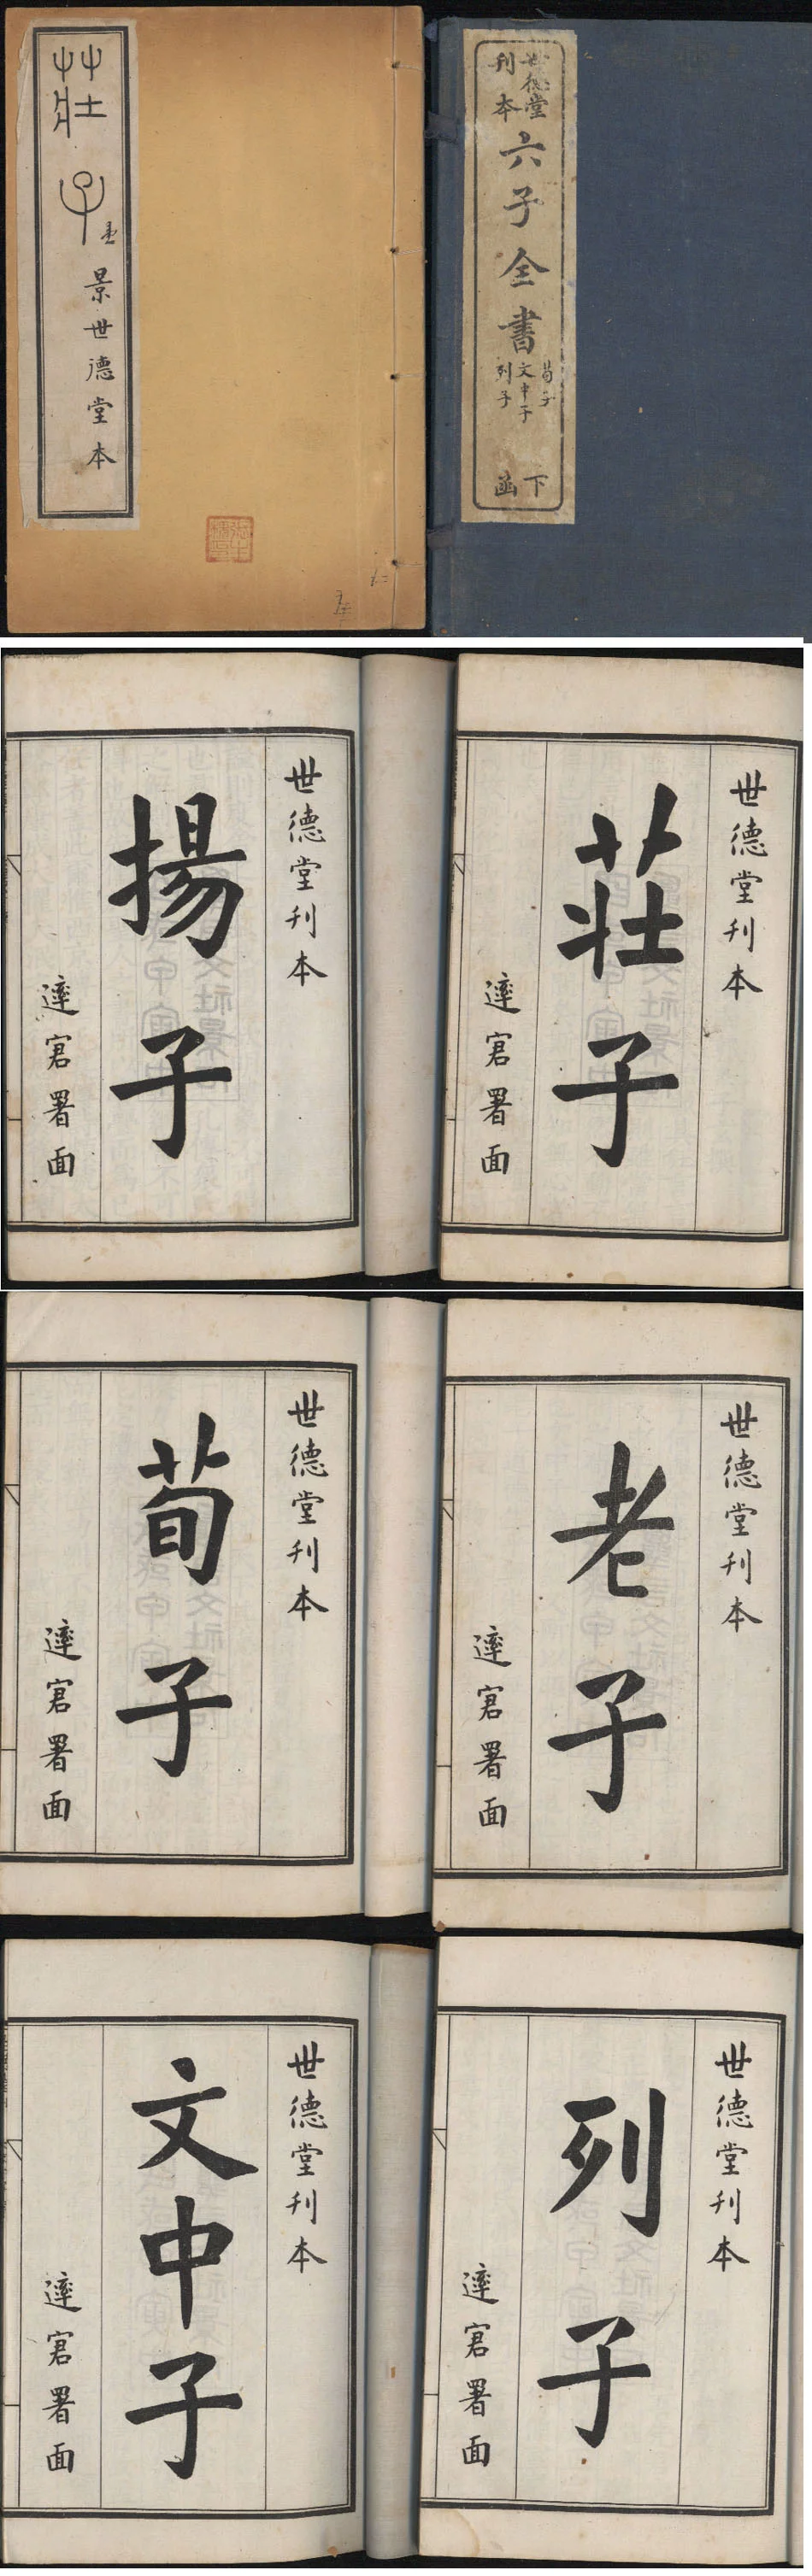 莊子
景世德堂本
世德堂
刊本
六子全書
荀子
文中子
列子
下
函
世德堂刊本
揚子
署面
世德堂刊本
莊子
署面
世德堂刊本
荀子
署面
世德堂刊本
老子
署面
世德堂刊本
文中子
署面
世德堂刊本
列子
署面